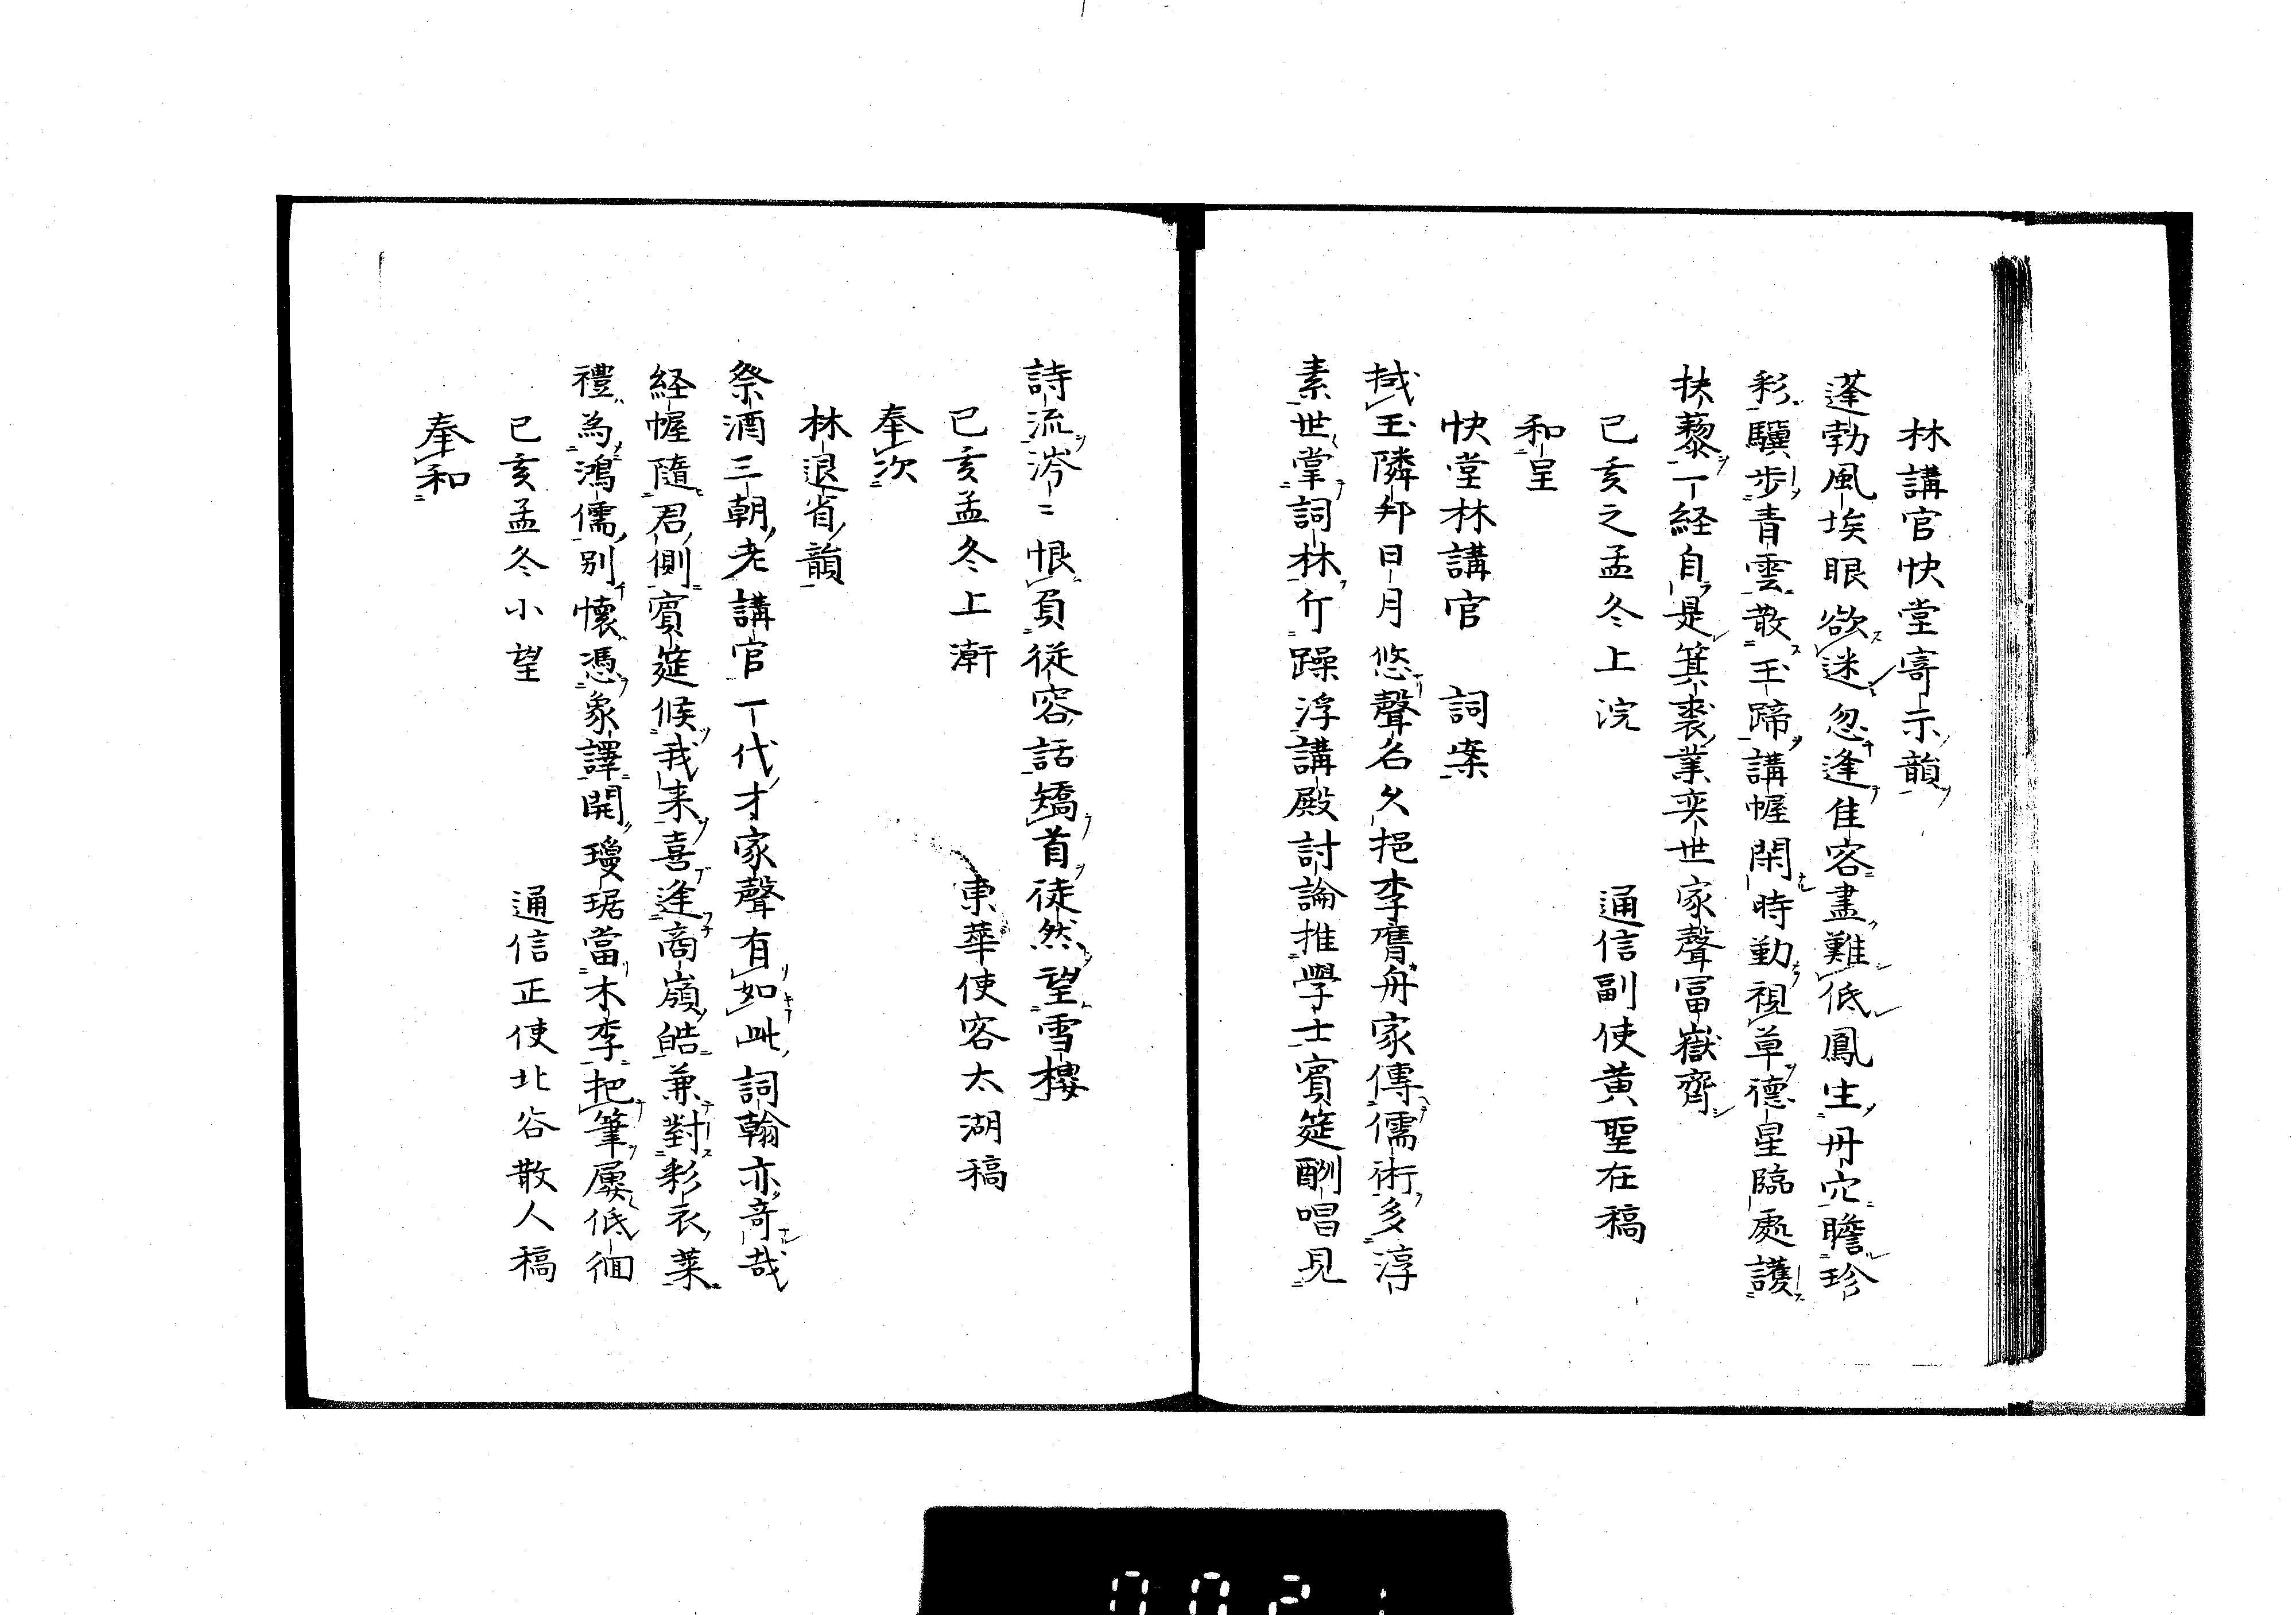 林講官快堂寄示韻
蓬勃風埃眼欲迷忽逢佳客盡難低鳳生丹穴瞻珍
彩驥步青雲散玉蹄講幄閑時勤視草德星臨處護
扶藜一経自是箕裘業奕世家聲冨嶽齊
己亥之孟冬上浣　通信副使黄聖在稿
和呈
快堂林講官　詞案
棫玉隣邦日月悠聲名久挹李膺舟家傳儒術多淳
素世掌詞林斥躁浮講殿討論推學士賓筵酬唱見
詩流涔〻恨負従容話矯首徒然望雪樓
己亥孟冬上澣　東華使客太湖稿
奉次
林退省韻
祭酒三朝老講官一代才家聲有如此詞翰亦奇哉
経幄隨君側賓筵候我来喜逢商嶺皓兼對彩衣莱
禮為鴻儒別懐憑象譯開瓊琚當木李把筆屢低徊
己亥孟冬小望　通信正使北谷散人稿
奉和
0021